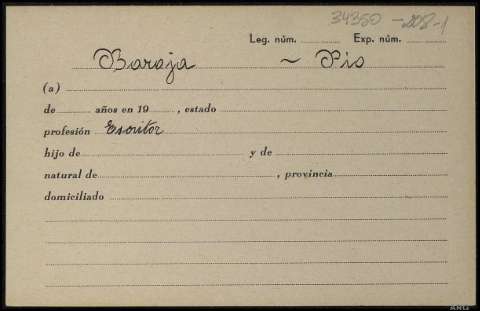 34350 -208-1
Leg. núm. Exp. núm.
Baroja ~ Pio
(a)
de años en 19 , estado
profesión Escritor
hijo de y de
natural de , provincia
domiciliado